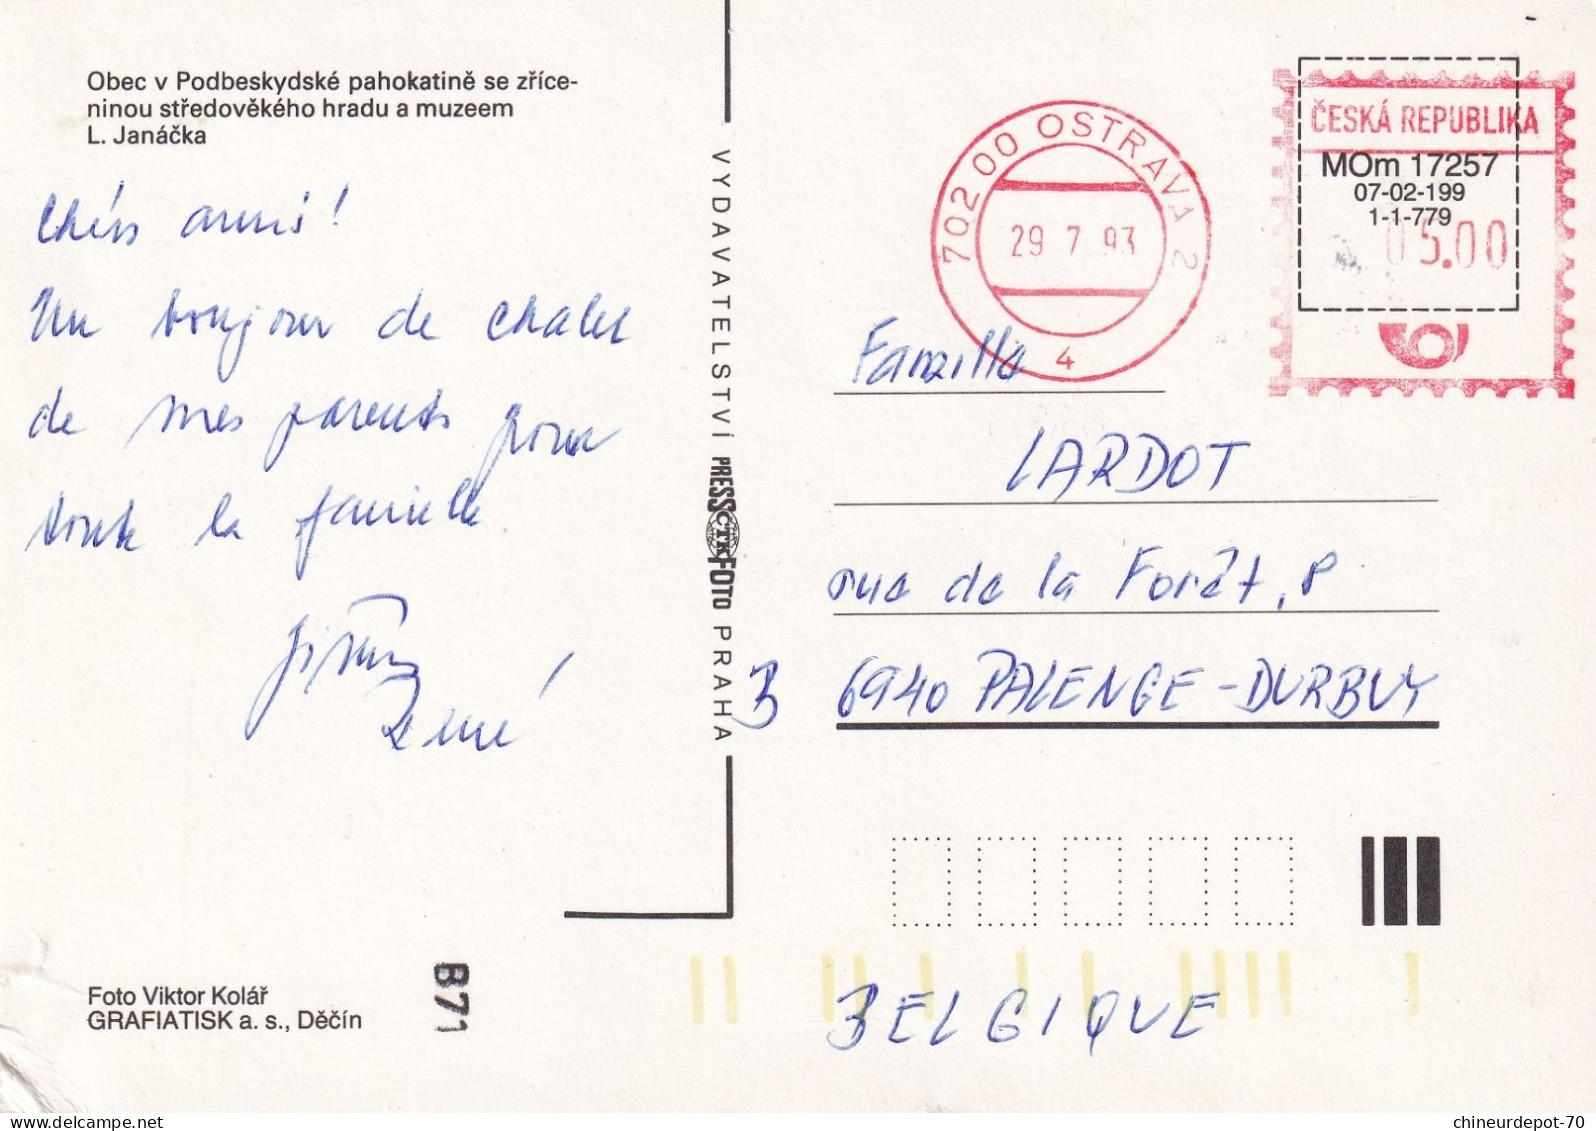 Obec v Podbeskydské pahokatině se zříce-
ninou středověkého hradu a muzeem
L. Janáčka
Chérs amis!
Un bonjour de chalet
de mes parents pour
toute la famille.
VYDAVATELSTVÍ PRESSFOTO PRAHA
ČTK
702 00 OSTRAVA 2
29 7 93
4
ČESKÁ REPUBLIKA
MOm 17257
07-02-199
1-1-779
05.00
Familla
LARDOT
rue de la Forêt, 8
B 6940 PALENGE-DURBUY
BELGIQUE
Foto Viktor Kolář
GRAFIATISK a. s., Děčín
B71
chineurdepot-70